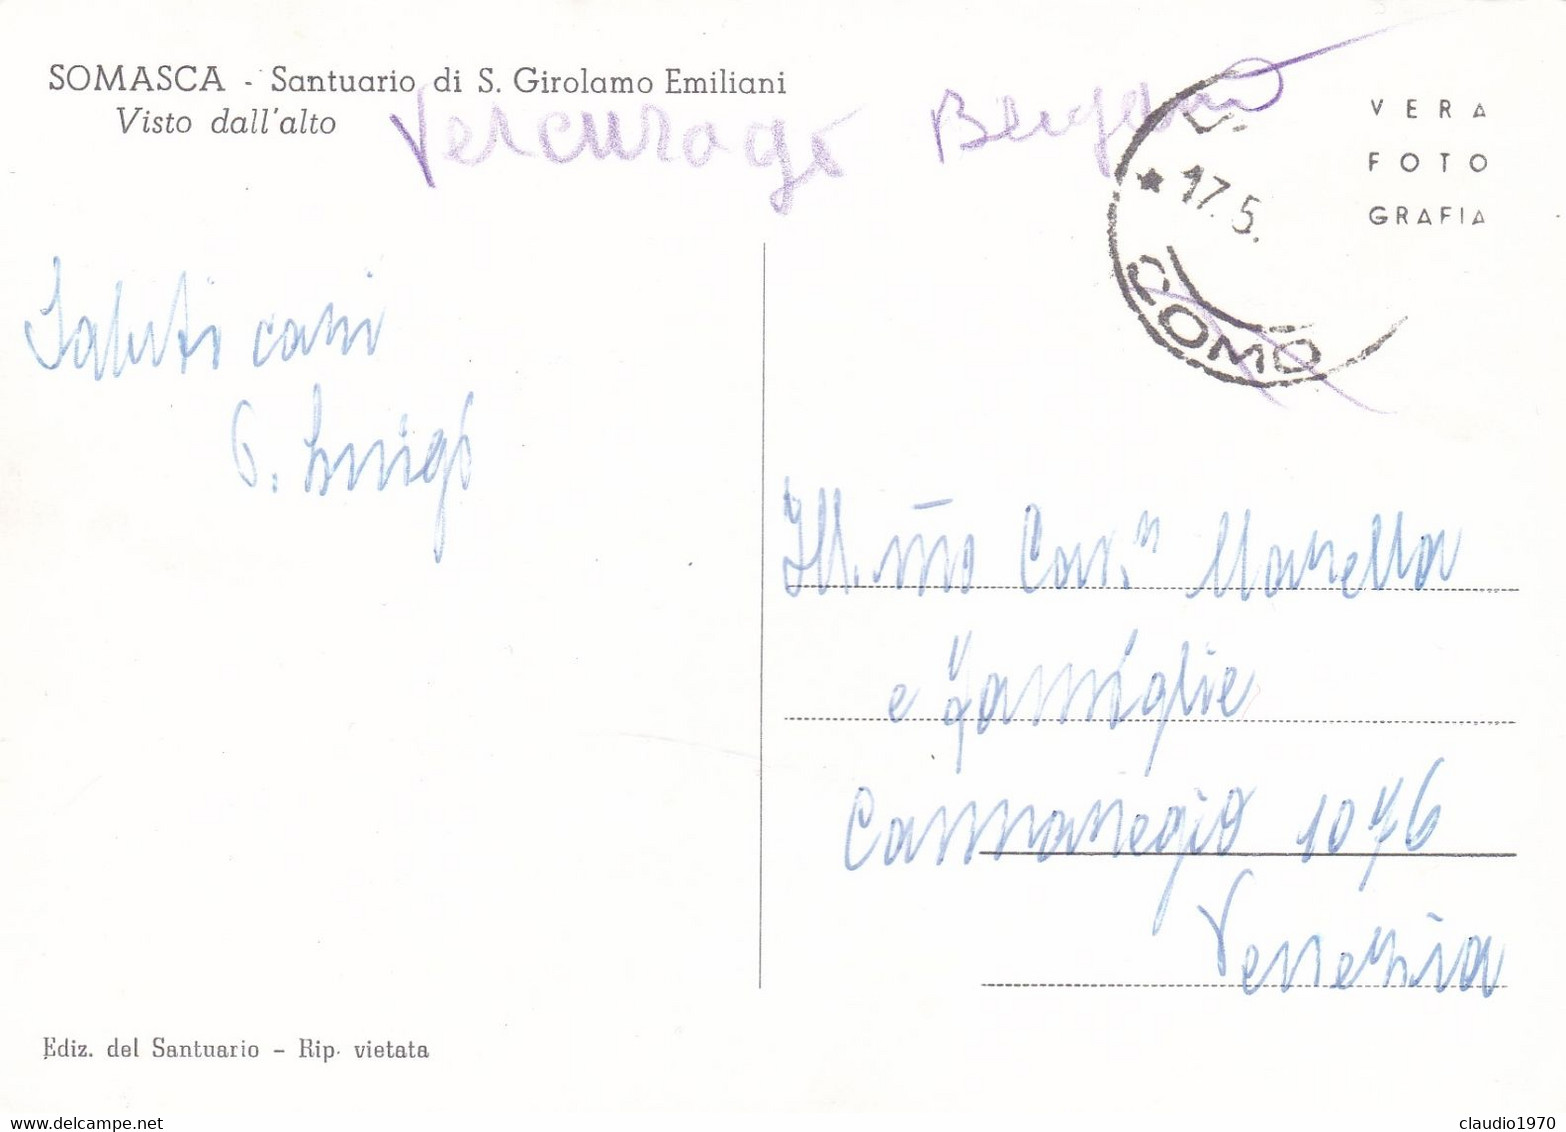 SOMASCA - Santuario di S. Girolamo Emiliani
Visto dall'alto
Vercurago Bergamo
VERA
FOTO
GRAFIA
* 17.5.
COMO
Saluti cari
Luigi
Ill.mo Cav.
e famiglie
Cannaregio 1076
Venezia
Ediz. del Santuario - Rip. vietata
claudio1970